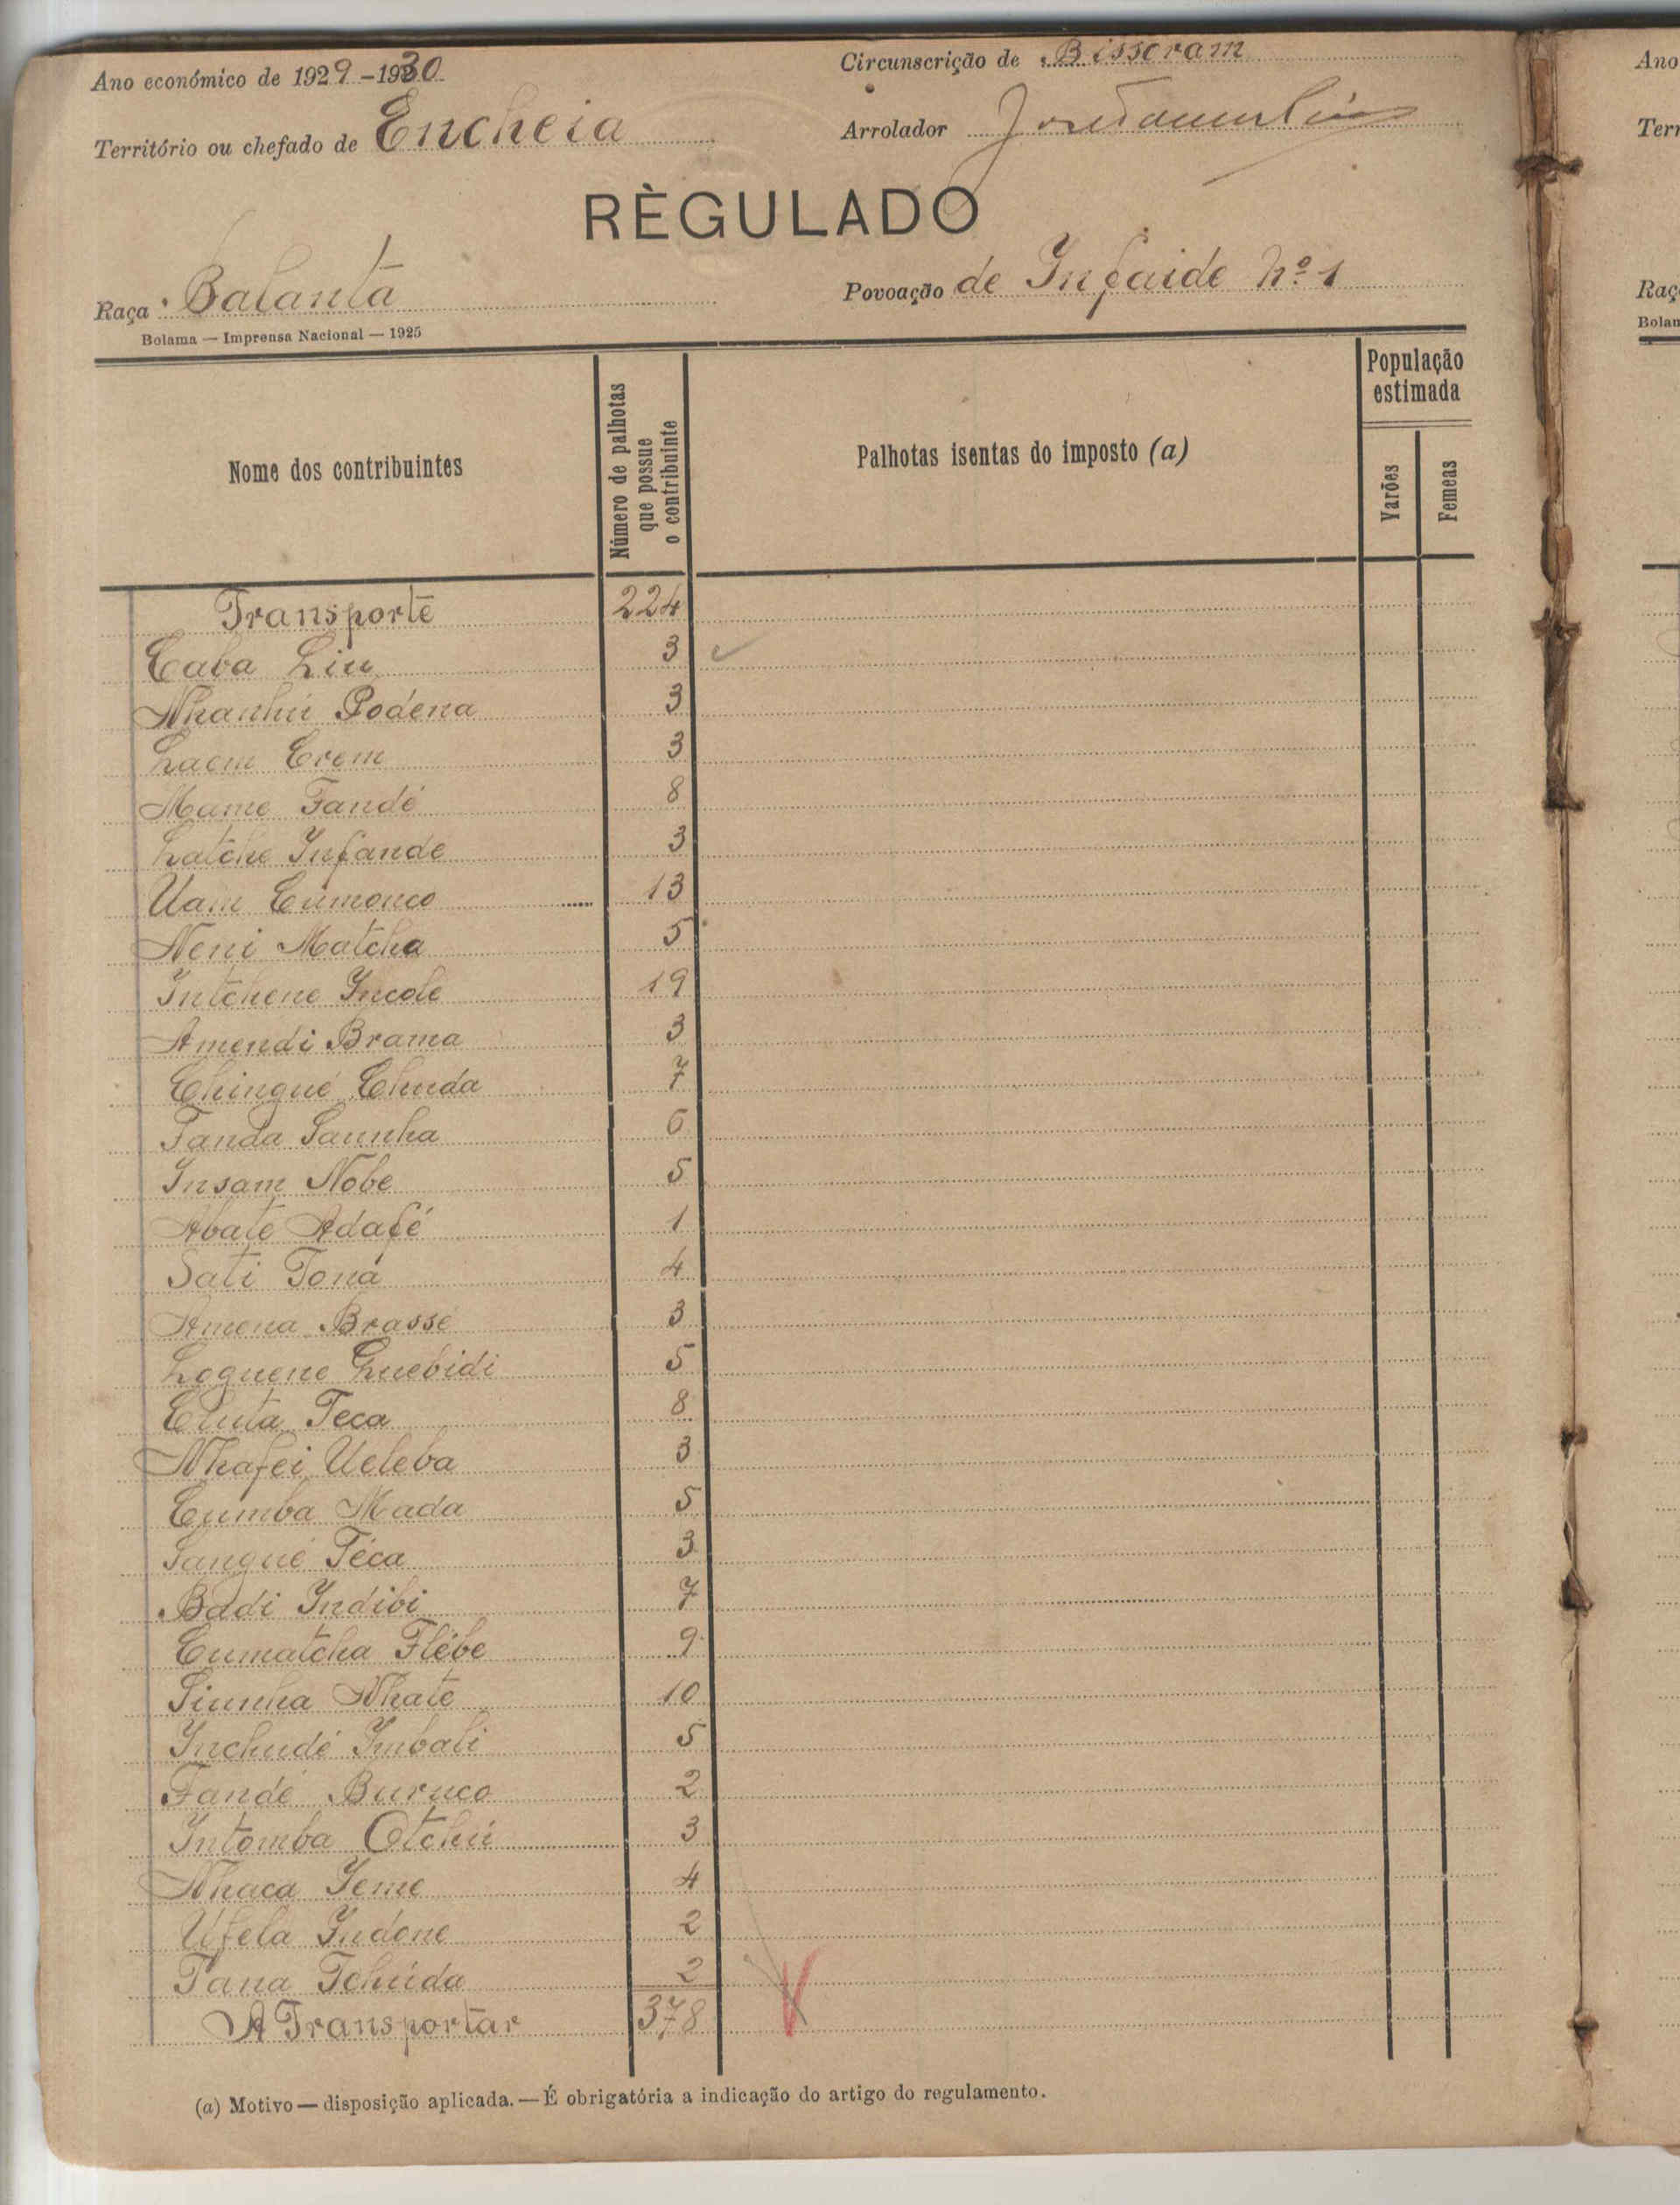 Ano económico de 1929-1930
Circunscrição de Bissoram
Território ou chefado de Encheia
Arrolador
RÈGULADO
Raça Balanta
Povoação de Infaide Nº 1
Bolama — Imprensa Nacional — 1925
Nome dos contribuintes
Número de palhotas que possue o contribuinte
Palhotas isentas do imposto (a)
População estimada
Varões
Femeas
Transporte 224
Caba Liu 3
Nhanhú Podena 3
Laem Crem 3
Mame Fandé 8
Latche Infande 3
Uam Cumonco 13
Neni Matcha 5
Intchene Incole 19
Amendi Brama 3
Chingué Chuda 7
Tanda Saunha 6
Insam Nobe 5
Abate Adafé 1
Sati Toná 4
Amena Brasse 3
Loguene Quebidi 5
Chuta Teca 8
Nhafei Ueleba 3
Cumba Mada 5
Sangué Téca 3
Badi Indibi 7
Cumatcha Flébe 9
Siunha Nhate 10
Inchudé Imbali 5
Fandé Buruco 2
Intomba Otchú 3
Nhaca Ieme 4
Ufela Indone 2
Tana Tchúda 2
A Transportar 378
(a) Motivo — disposição aplicada. — É obrigatória a indicação do artigo do regulamento.
Ano
Terr
Raç
Bolan